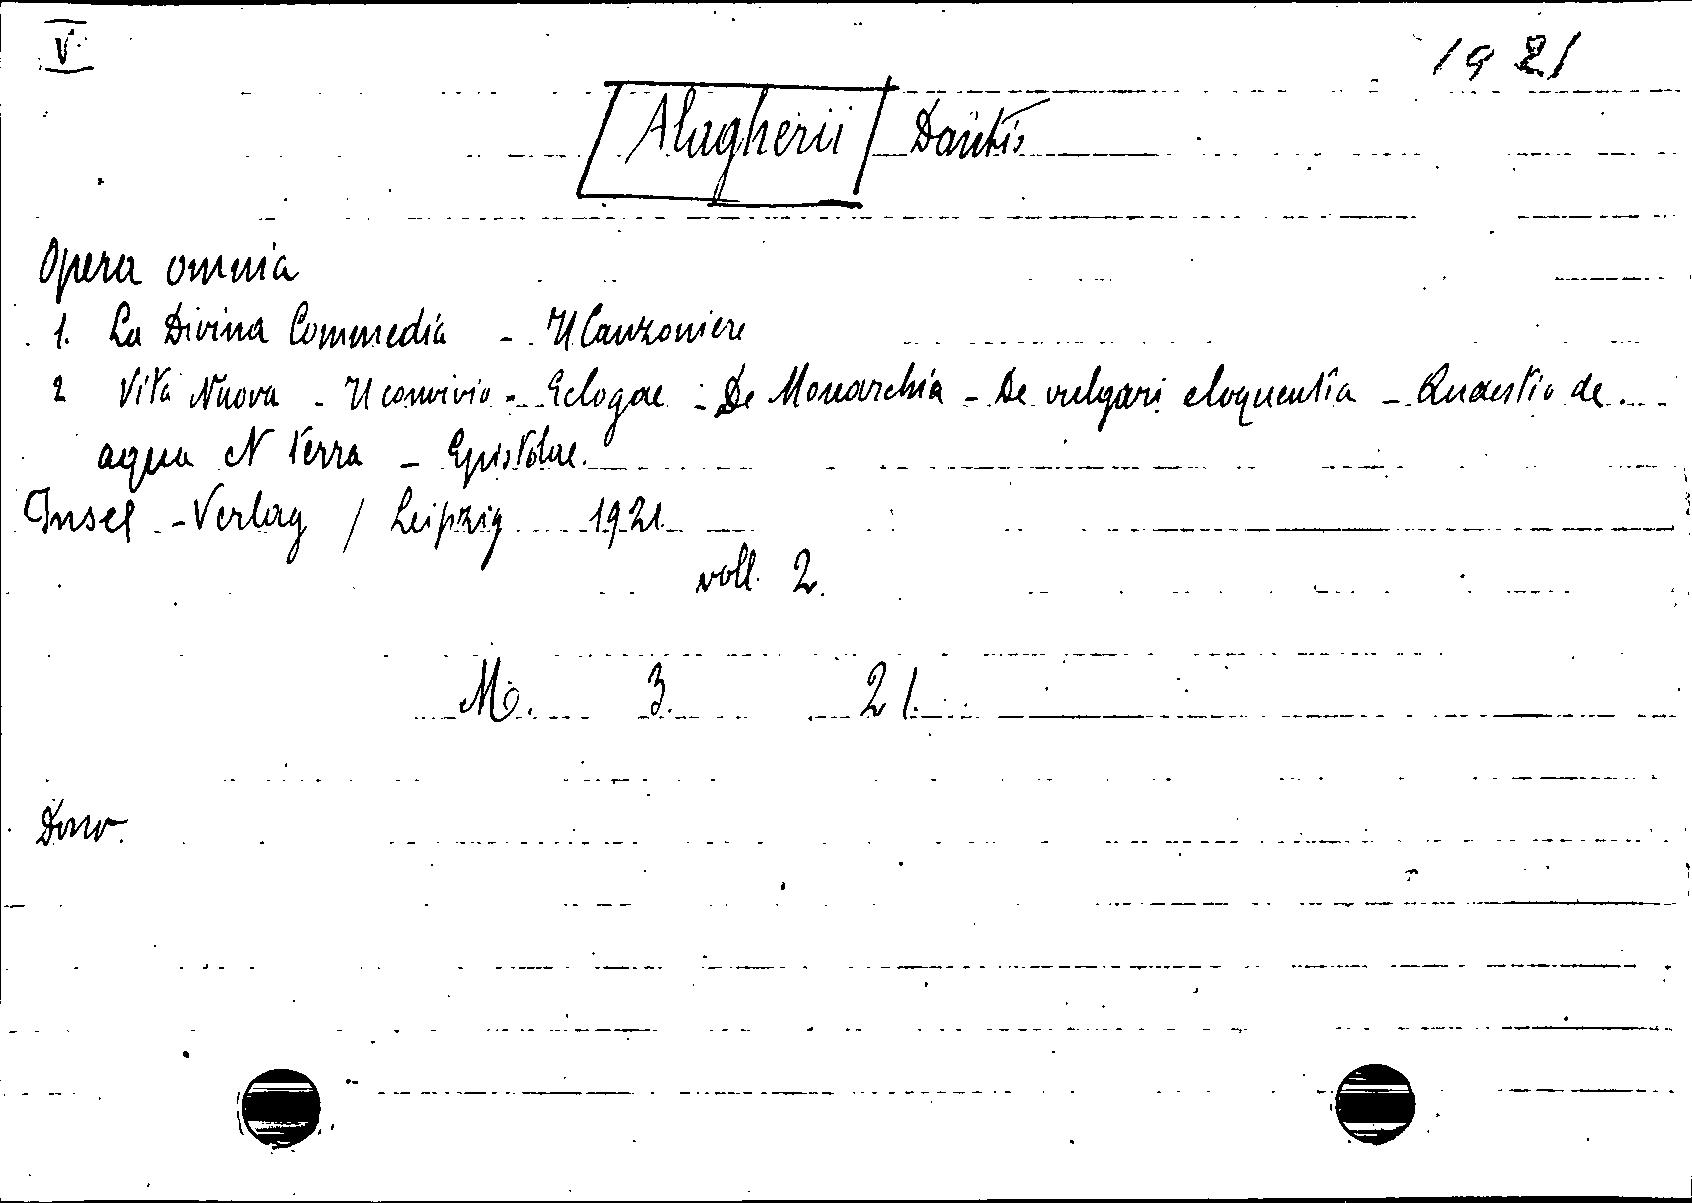 V
1921
Alagherii Dantis
Opera omnia
1. La Divina Commedia - Il Canzoniere
2 Vita Nuova - Il convivio - Eclogae - De Monarchia - De vulgari eloquentia - Quaestio de
aqua et terra - Epistolae.
Insel-Verlag / Leipzig 1921
voll. 2.
M. 3. 21.
Dono.